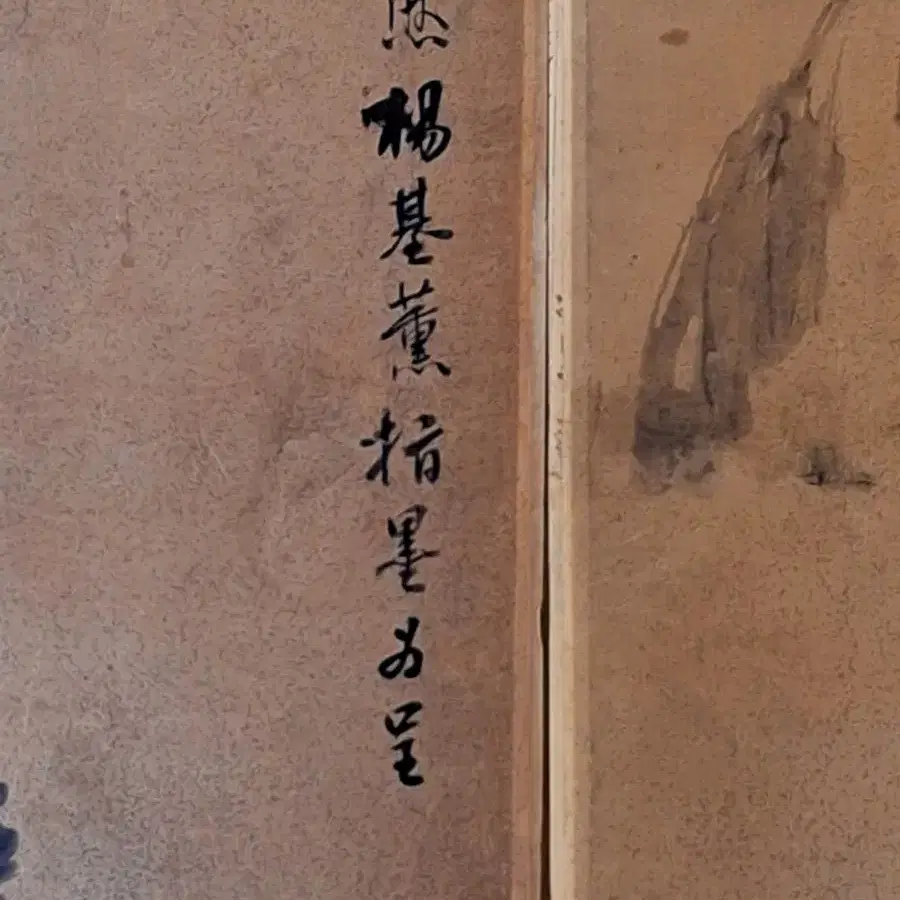 楊基薰指墨為呈